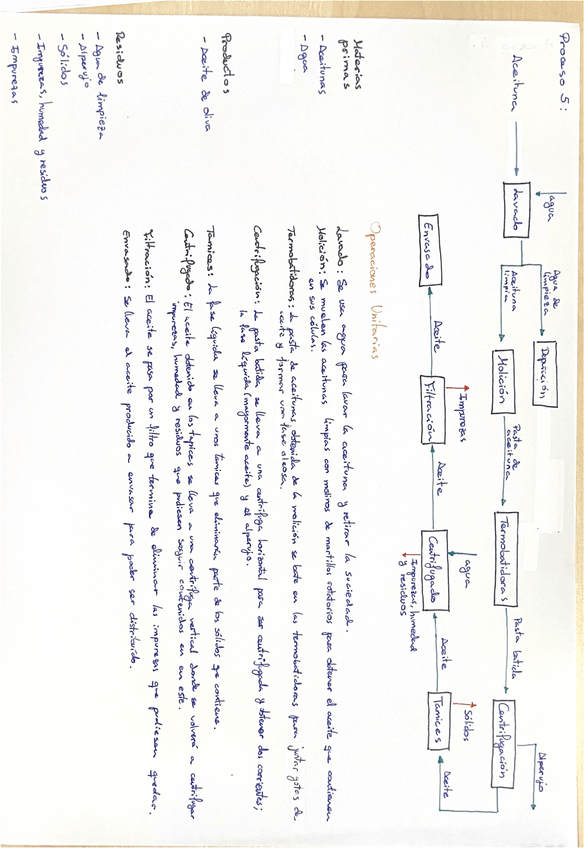 Proceso 5:
Aceituna
agua
Lavado
Agua de
limpieza
Depuración
Aceituna
limpia
Molición
Pasta de
aceituna
Termobatidoras
Pasta batida
Centrifugación
Alperujo
Aceite
Tamices
Sólidos
Aceite
Centrifugado
agua
Impurezas, humedad
y residuos
Aceite
Filtración
Imprezas
Aceite
Envasado
Materias
primas
- Aceitunas
- Agua
Productos
- Aceite de oliva
Residuos
- Agua de limpieza
- Alperujo
- Sólidos
- Impurezas, humedad y residuos
- Impurezas
Operaciones Unitarias
Lavado: Se usa agua para lavar la aceituna y retirar la suciedad.
Molición: Se muelen las aceitunas limpias con molinos de martillos rotatorios para obtener el aceite que contienen
en sus células.
Termobatidoras: La pasta de aceitunas obtenida de la molición se bate en las termobatidoras para juntar gotas de
aceite y formar una fase oleosa.
Centrifugación: La pasta batida se lleva a una centrífuga horizontal para ser centrifugada y obtener dos corrientes;
la fase líquida (mayormente aceite) y el alperujo.
Tamices: La fase líquida se lleva a unos tamices que eliminarán parte de los sólidos que contiene.
Centrifugado: El aceite obtenido en los tapices se lleva a una centrífuga vertical donde se volverá a centrifugar
impurezas, humedad y residuos que pudiesen seguir contenidos en en este.
Filtración: El aceite se pasa por un filtro que termine de eliminar las impurezas que pudiesen quedar.
Envasado: Se lleva el aceite producido a envasar para poder ser distribuido.